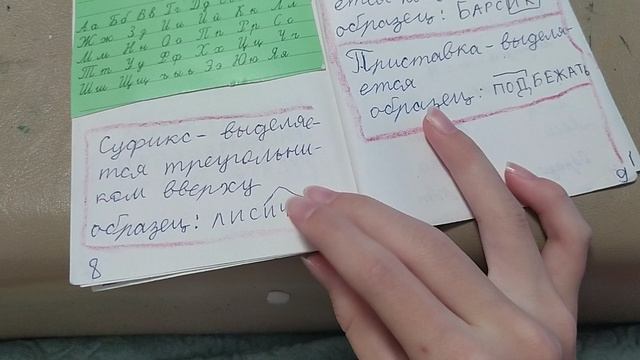 Аа Бб Вв Гг Дд
Жж Зз Ии Йй Кк Лл
Мм Нн Оо Пп Рр Сс
Тт Уу Фф Хх Цц Чч
Шш Щщ ъ ы ь Ээ Юю Яя
Суфикс - выделяе-
тся треугольни-
ком вверху
образец:
8
образец: БАРСИК
Приставка - выделя-
ется
образец: ПОДБЕЖАТЬ
9